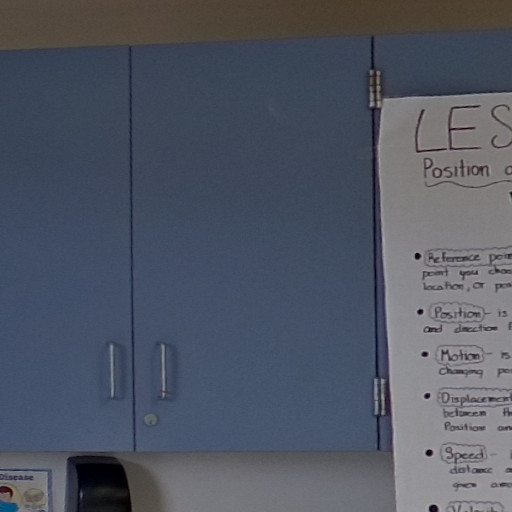 LES
Position
• Reference
point you
location, or
• Position - is
and direction
• Motion - is
changing
• Displacement
between
Position
• Speed -
distance
given
Disease